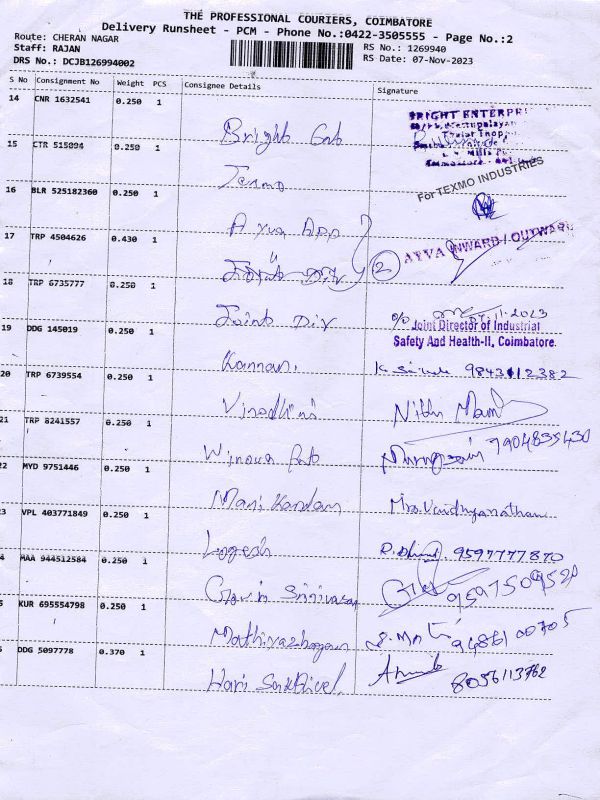 THE PROFESSIONAL COURIERS, COIMBATORE
Delivery Runsheet - PCM - Phone No.:0422-3505555 - Page No.:2
Route: CHERAN NAGAR
Staff: RAJAN
RS No.: 1269940
DRS No.: DCJB126994002
RS Date: 07-Nov-2023
S No Consignment No Weight PCS Consignee Details Signature
14 CNR 1632541 0.250 1 Bright Ent
BRIGHT ENTERPRI
15 CTR 515094 0.250 1 Texmo
For TEXMO INDUSTRIES
16 BLR 525182360 0.250 1 Ayva App
17 TRP 4504626 0.430 1
2 AYVA INWARD / OUTWARD
18 TRP 6735777 0.250 1 Joint Dir
Joint Director of Industrial
Safety And Health-II, Coimbatore.
19 DDG 145019 0.250 1 Kannan. 9843112382
20 TRP 6739554 0.250 1 Vinodhini
21 TRP 8241557 0.250 1 7904835430
22 MYD 9751446 0.250 1 Mani Kandan Mrs. Vaidhyanathan
3 VPL 403771849 0.250 1 Logesh 9597777870
4 MAA 944512584 0.250 1 Srinivasan 9597509520
5 KUR 695554798 0.250 1 Mathiyazhagan 9486100705
DDG 5097778 0.370 1 Hari 8056113762